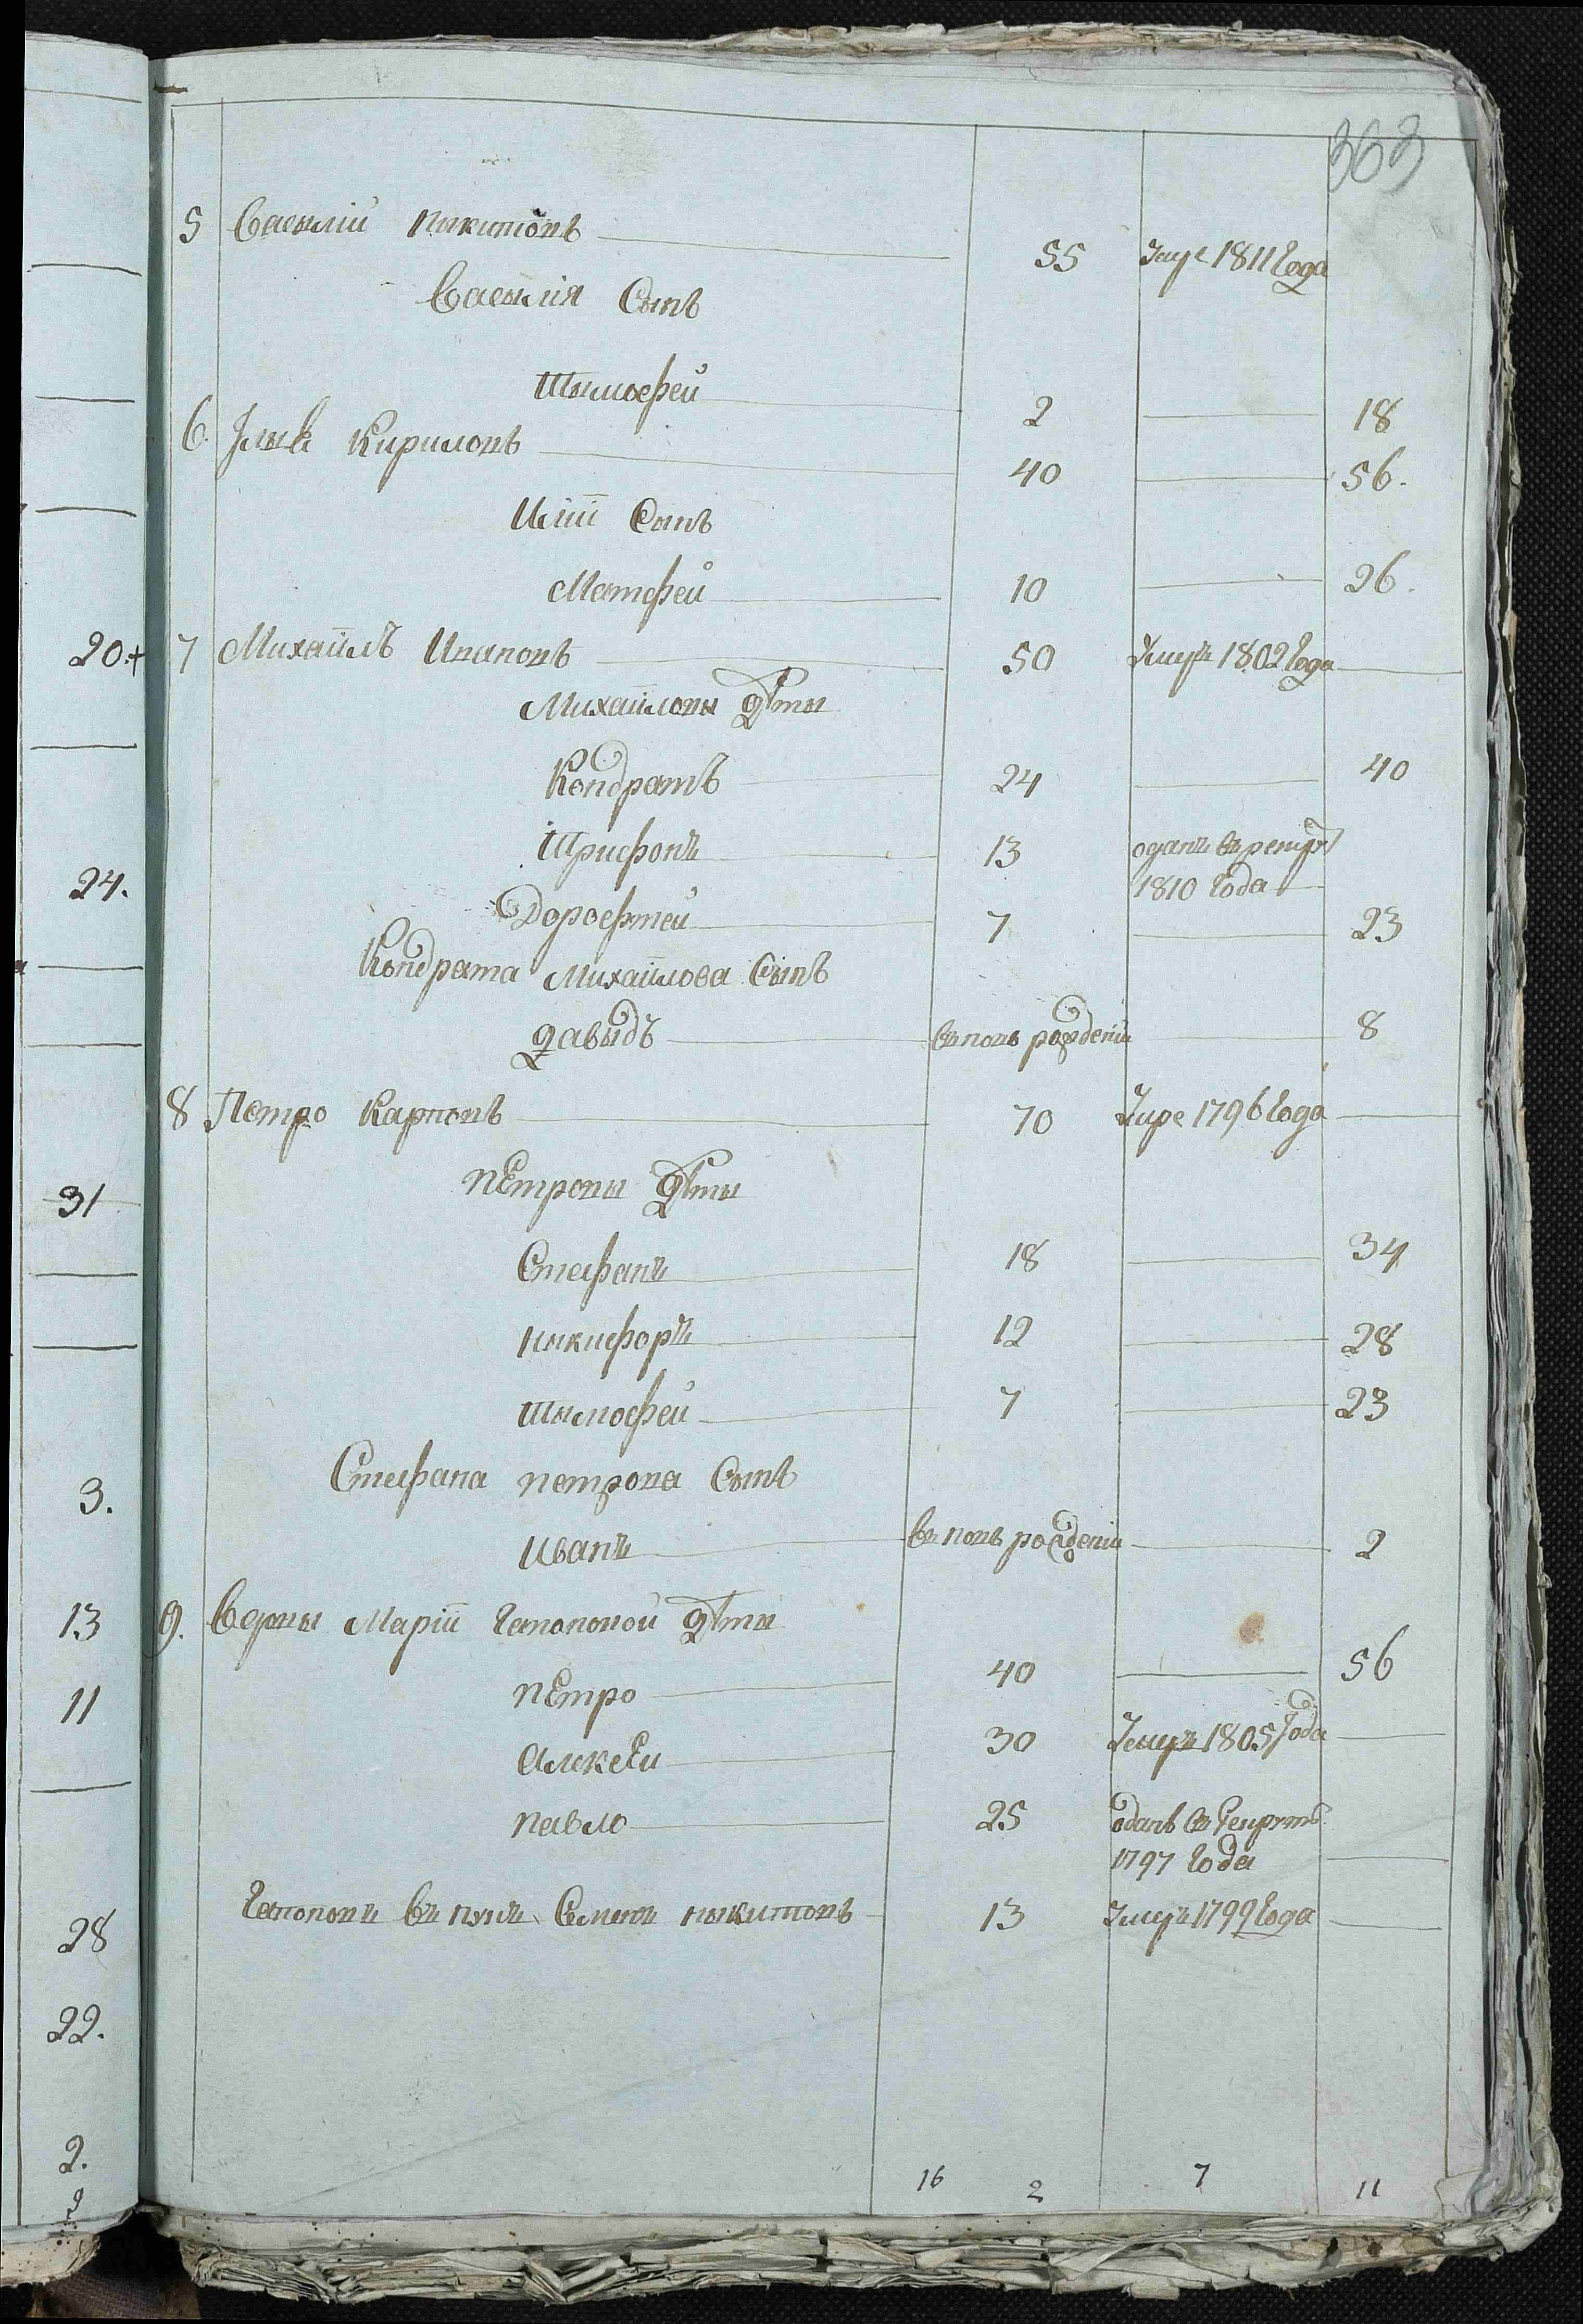 363
5 Василій Никитовъ 55 Умре 1811 года
Василія Сынъ
Тымофей 2 18
6. Илья Кириловъ 40 56.
Иліи Сынъ
Матфей 10 26.
20.+
7 Михайлъ Ивановъ 50 Умеръ 1802 Года
Михайловы дѣты
Кондратъ 24 40
Трифонъ 13 одатъ въ рекруты
1810 Года
24.
Дорофтей 7 23
Кондрата Михайлова Сынъ
Давыдъ вновь рожденій 8
8 Петро Карповъ 70 Умре 1796 Года
Петровы дѣты
31
Стефанъ 18 34
Никифоръ 12 28
Тымофей 7 23
Стефана Петрова Сынъ
3.
Иванъ вновь рожденій 2
13
9. Вдовы Маріи Гапоновой дѣты
Петро 40 56
11
Алексѣй 30 Умеръ 1805 Года
Павло 25 одатъ въ рекруты
1797 Года
Гапоновъ внукъ Семенъ Никитовъ 13 Умеръ 1799 Года
28
22.
2.
16 2 7 11